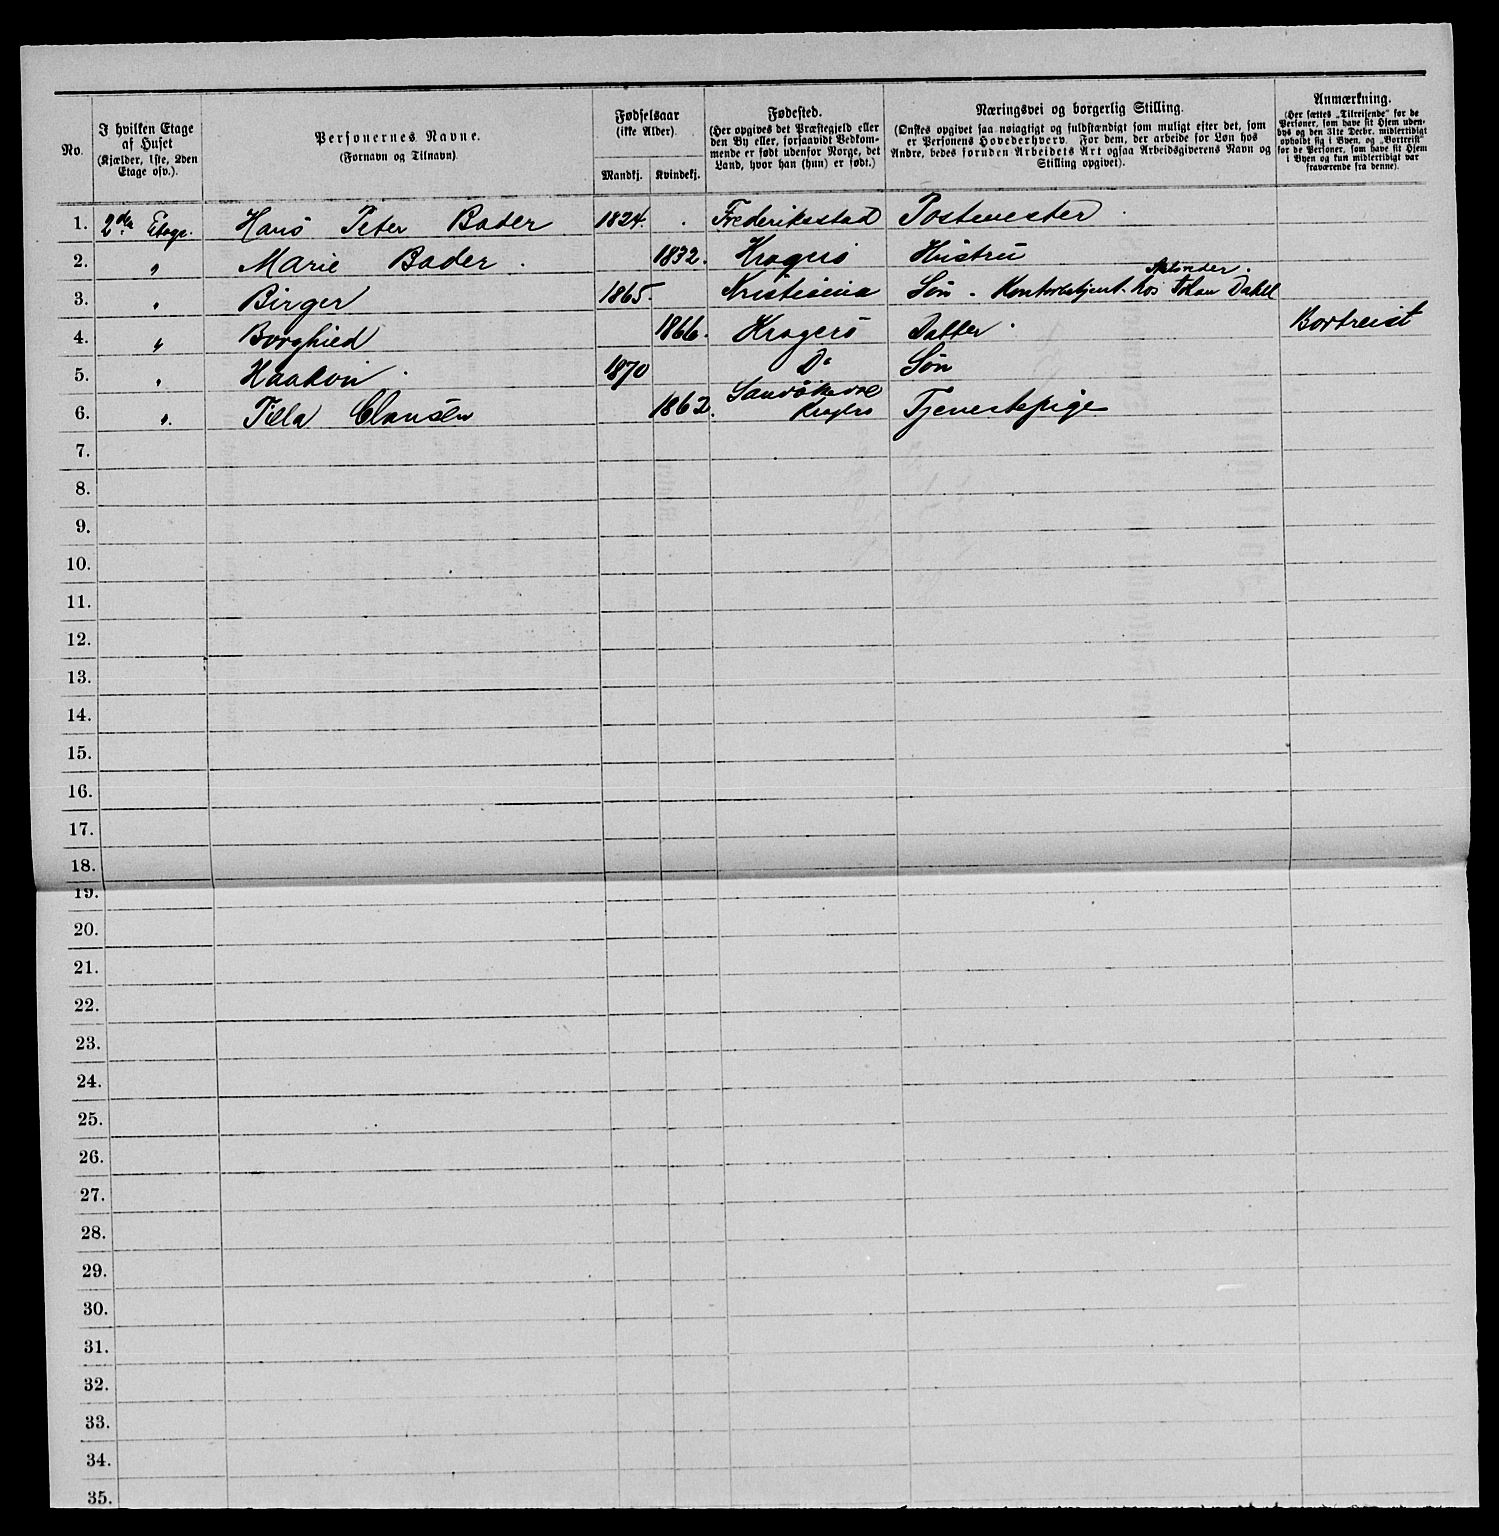 No.
I hvilken Etage
af Huset
(Kjælder, 1ste, 2den
Etage osv.).
Personernes Navne.
(Fornavn og Tilnavn)
Fødselsaar
(ikke Alder)
Mandkj. Kvindekj.
Fødested.
(Her opgives det Præstegjeld eller
den By eller, forsaavidt Vedkom-
mende er født udenfor Norge, det
Land, hvor han (hun) er født.)
Næringsvei og borgerlig Stilling.
(Ønskes opgivet saa nøiagtigt og fuldstændigt som muligt efter det, som
er Personens Hovederhverv. For dem, der arbeide for Løn hos
Andre, bedes foruden Arbeidets Art ogsaa Arbeidsgiverens Navn og
Stilling opgivet).
Anmærkning.
(Her sættes „Tilreisende" for de
Personer, som have sit Hjem uden-
bys og den 31te Decbr. midlertidigt
opholdt sig i Byen, og „Bortreist"
for de Personer, som have sit Hjem
i Byen og kun midlertidigt var
fraværende fra denne).
1. 2den Etage. Hans Peter Bader 1824. Frederiksstad Postmester
2. " Marie Bader. 1832. Kragerö Hüstru
3. " Birger 1865. Kristiania Sön. Kontorbetjent. hos Johan Dahll
4. " Borghied 1866. Kragerö Datter. Bortreist
5. " Haakon. 1870 Do Sön
6. " Tilla Clausen 1862. Sandökedal Kragerö Tjenestepige
7.
8.
9.
10.
11.
12.
13.
14.
15.
16.
17.
18.
19.
20.
21.
22.
23.
24.
25.
26.
27.
28.
29.
30.
31.
32.
33.
34.
35.